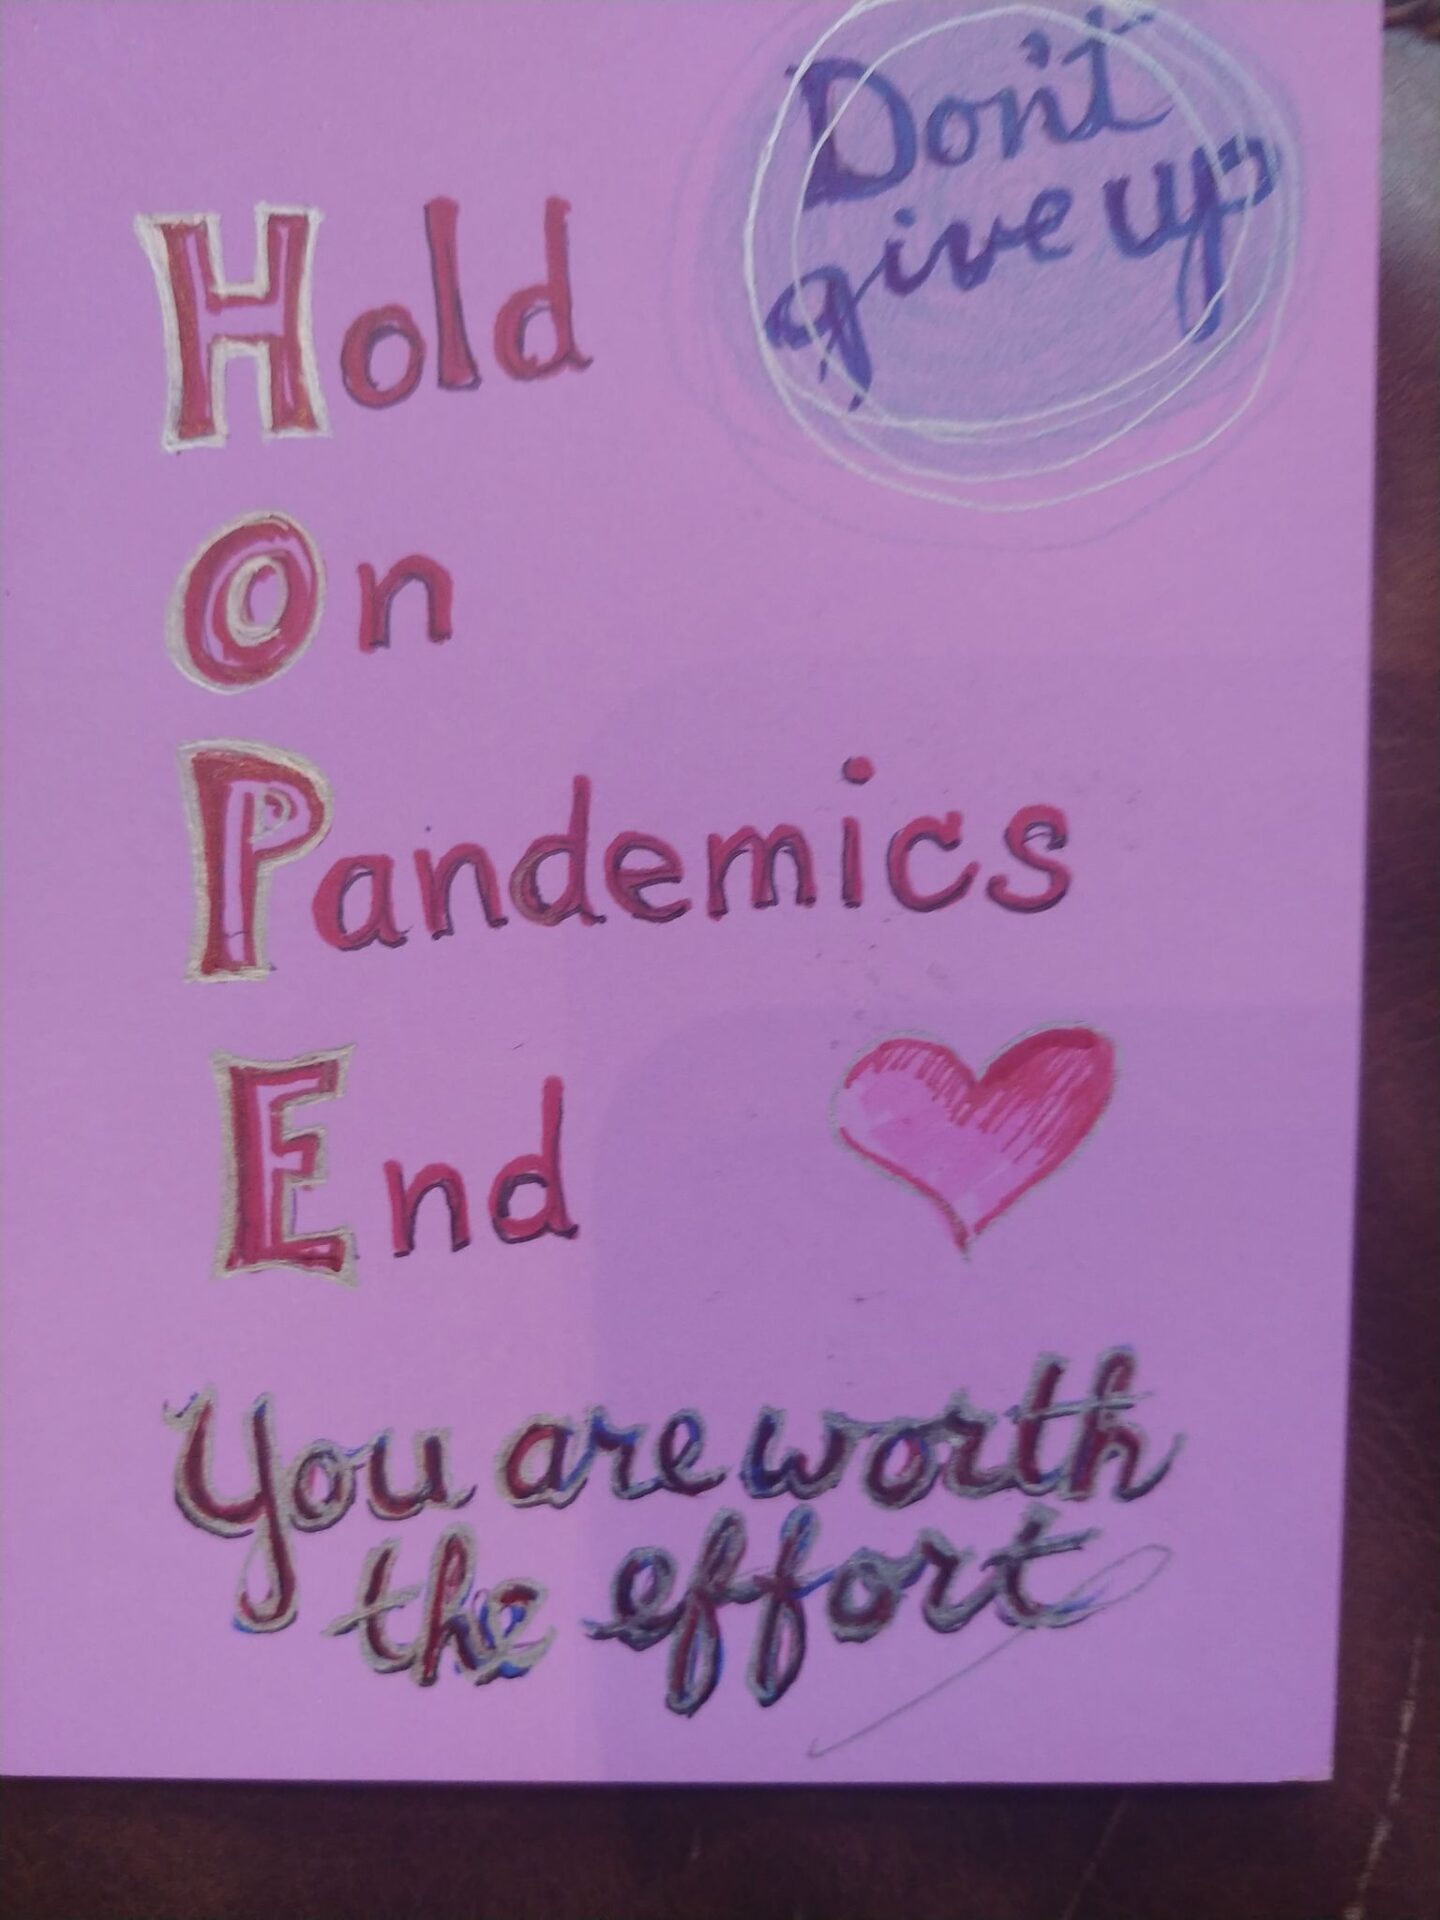 Don't
give up
Hold
On
Pandemics
End
You are worth
the effort